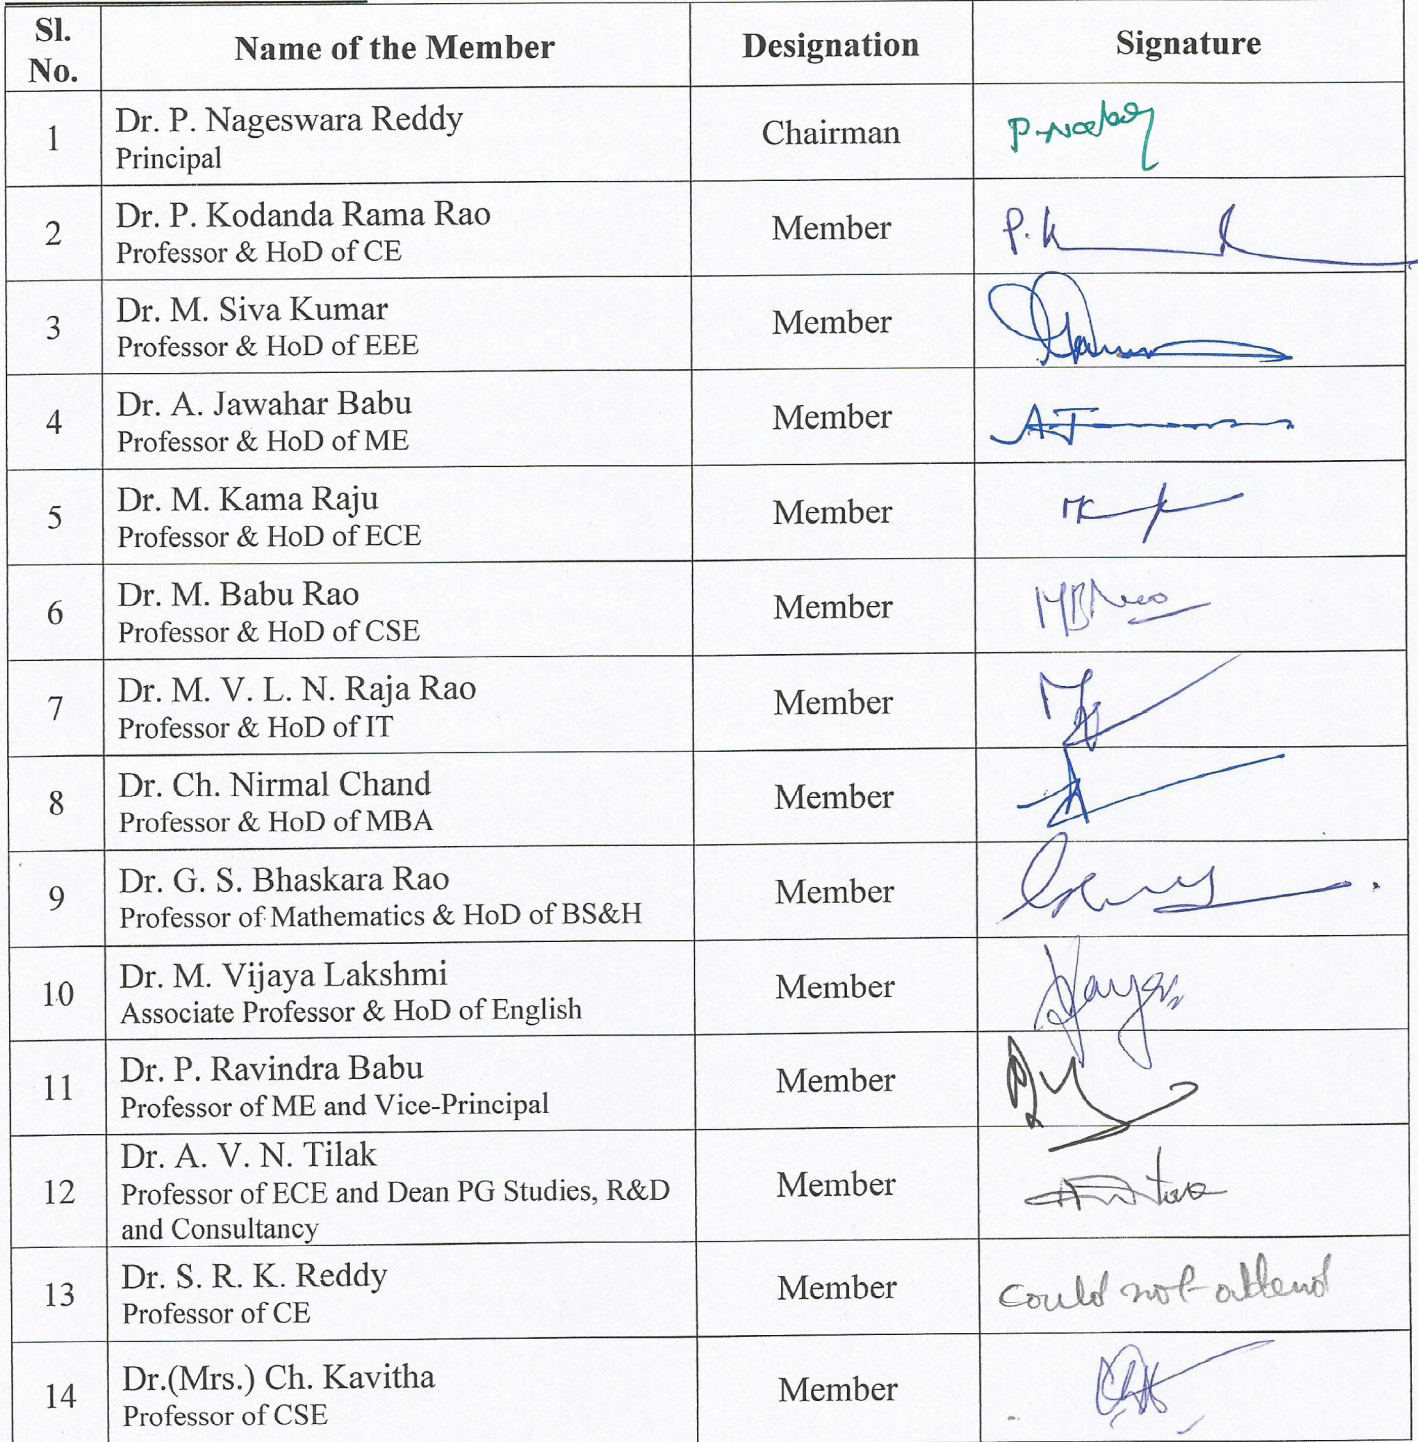 Sl.
No.
Name of the Member
Designation
Signature
1
Dr. P. Nageswara Reddy
Principal
Chairman
2
Dr. P. Kodanda Rama Rao
Professor & HoD of CE
Member
P. K
3
Dr. M. Siva Kumar
Professor & HoD of EEE
Member
4
Dr. A. Jawahar Babu
Professor & HoD of ME
Member
5
Dr. M. Kama Raju
Professor & HoD of ECE
Member
6
Dr. M. Babu Rao
Professor & HoD of CSE
Member
7
Dr. M. V. L. N. Raja Rao
Professor & HoD of IT
Member
8
Dr. Ch. Nirmal Chand
Professor & HoD of MBA
Member
9
Dr. G. S. Bhaskara Rao
Professor of Mathematics & HoD of BS&H
Member
10
Dr. M. Vijaya Lakshmi
Associate Professor & HoD of English
Member
11
Dr. P. Ravindra Babu
Professor of ME and Vice-Principal
Member
12
Dr. A. V. N. Tilak
Professor of ECE and Dean PG Studies, R&D
and Consultancy
Member
13
Dr. S. R. K. Reddy
Professor of CE
Member
could not attend
14
Dr.(Mrs.) Ch. Kavitha
Professor of CSE
Member